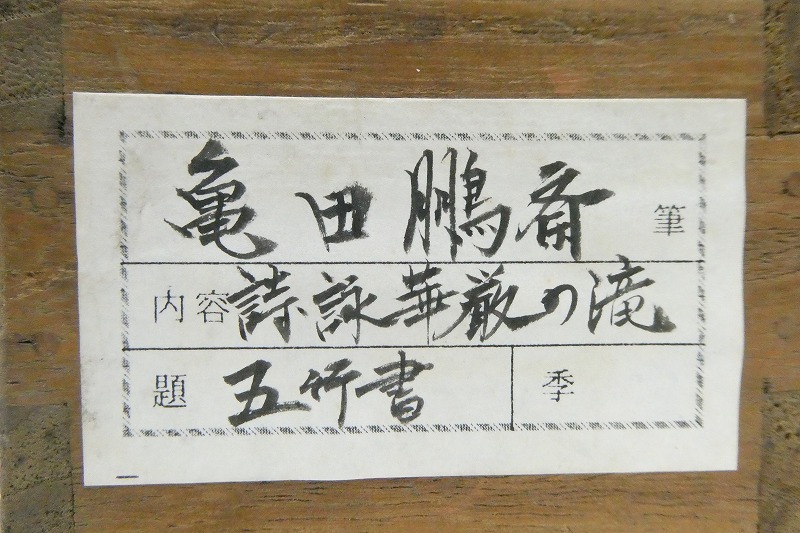 亀田鵬斎 筆
内容 詩詠華厳の滝
題 五行書 季